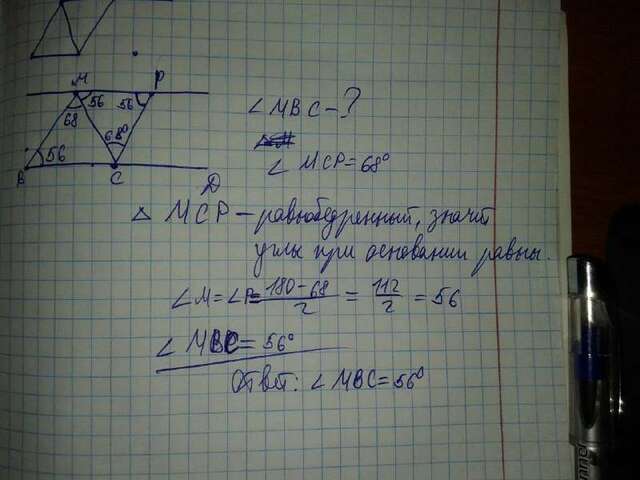 M P
56 56
68 68°
56
B C D
∠ MBC - ?
∠ MCP = 68°
△ MCP - равнобедренный, значит
углы при основании равны.
∠M = ∠P = 180-68/2 = 112/2 = 56
∠ MBC = 56°
Ответ: ∠ MBC = 56°